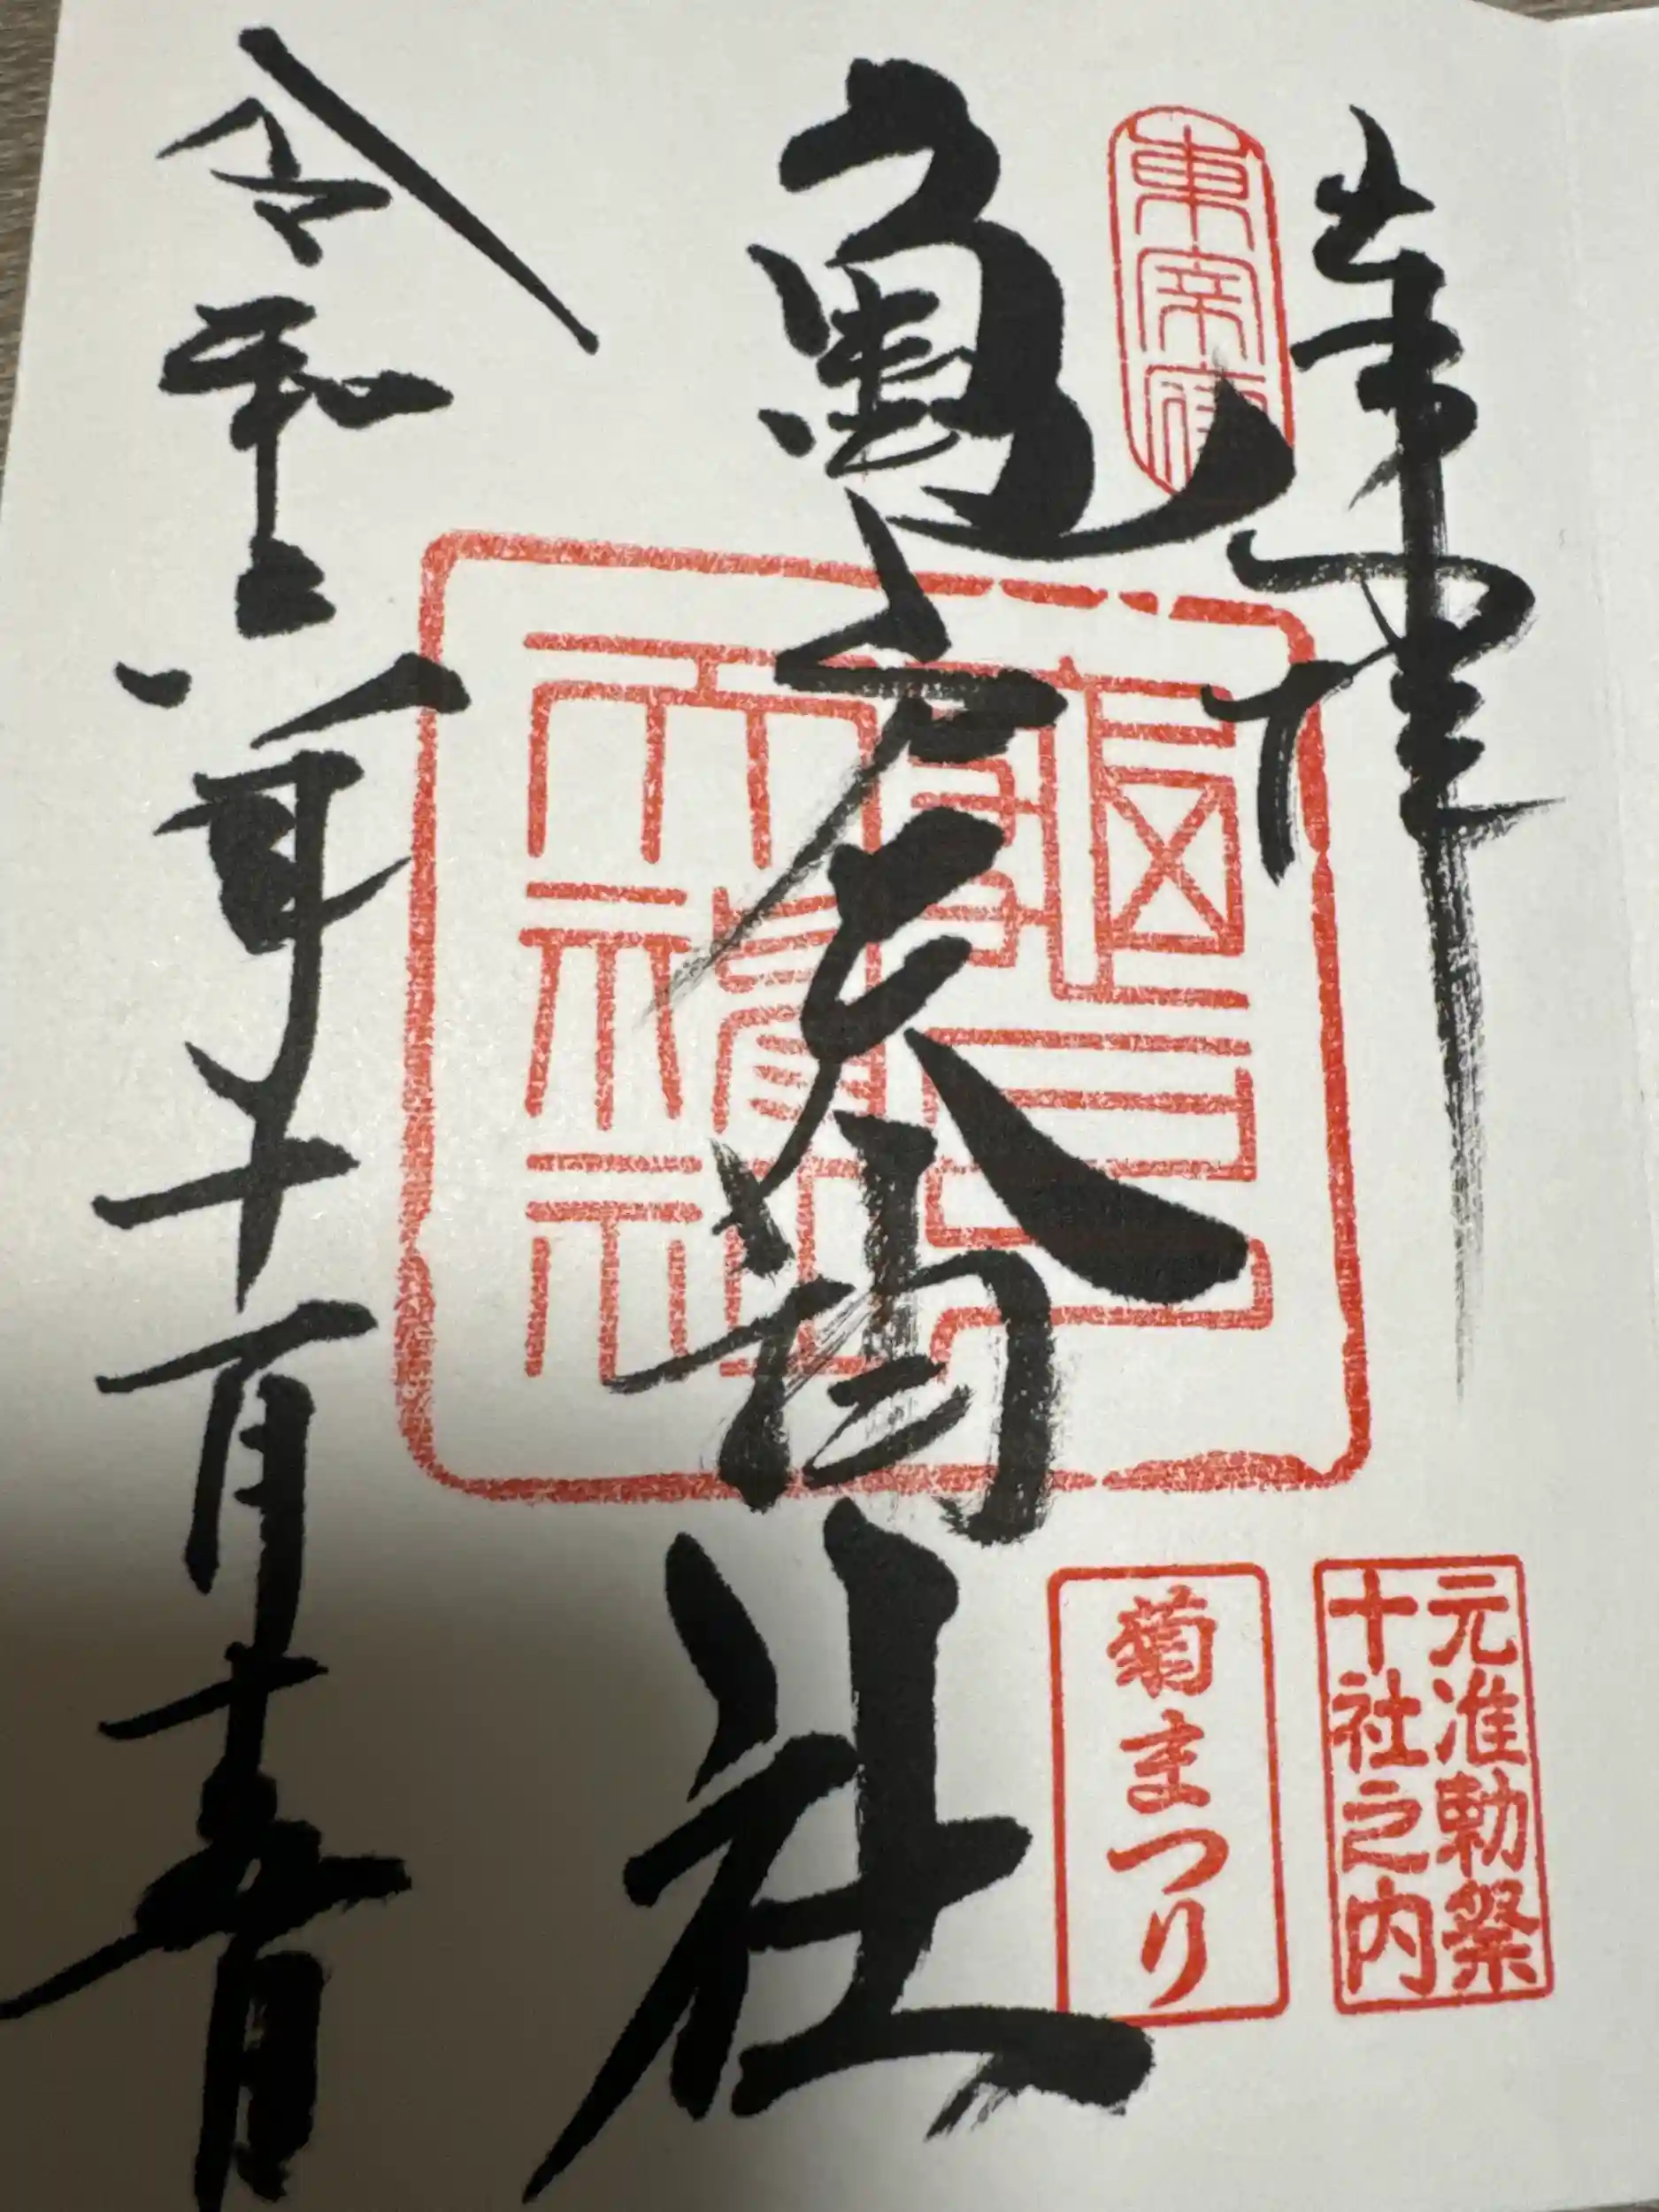 奉拝
東宰府
亀戸天神社
龜戸
天神社
元准勅祭
十社之内
菊まつり
令和六年十一月十五日